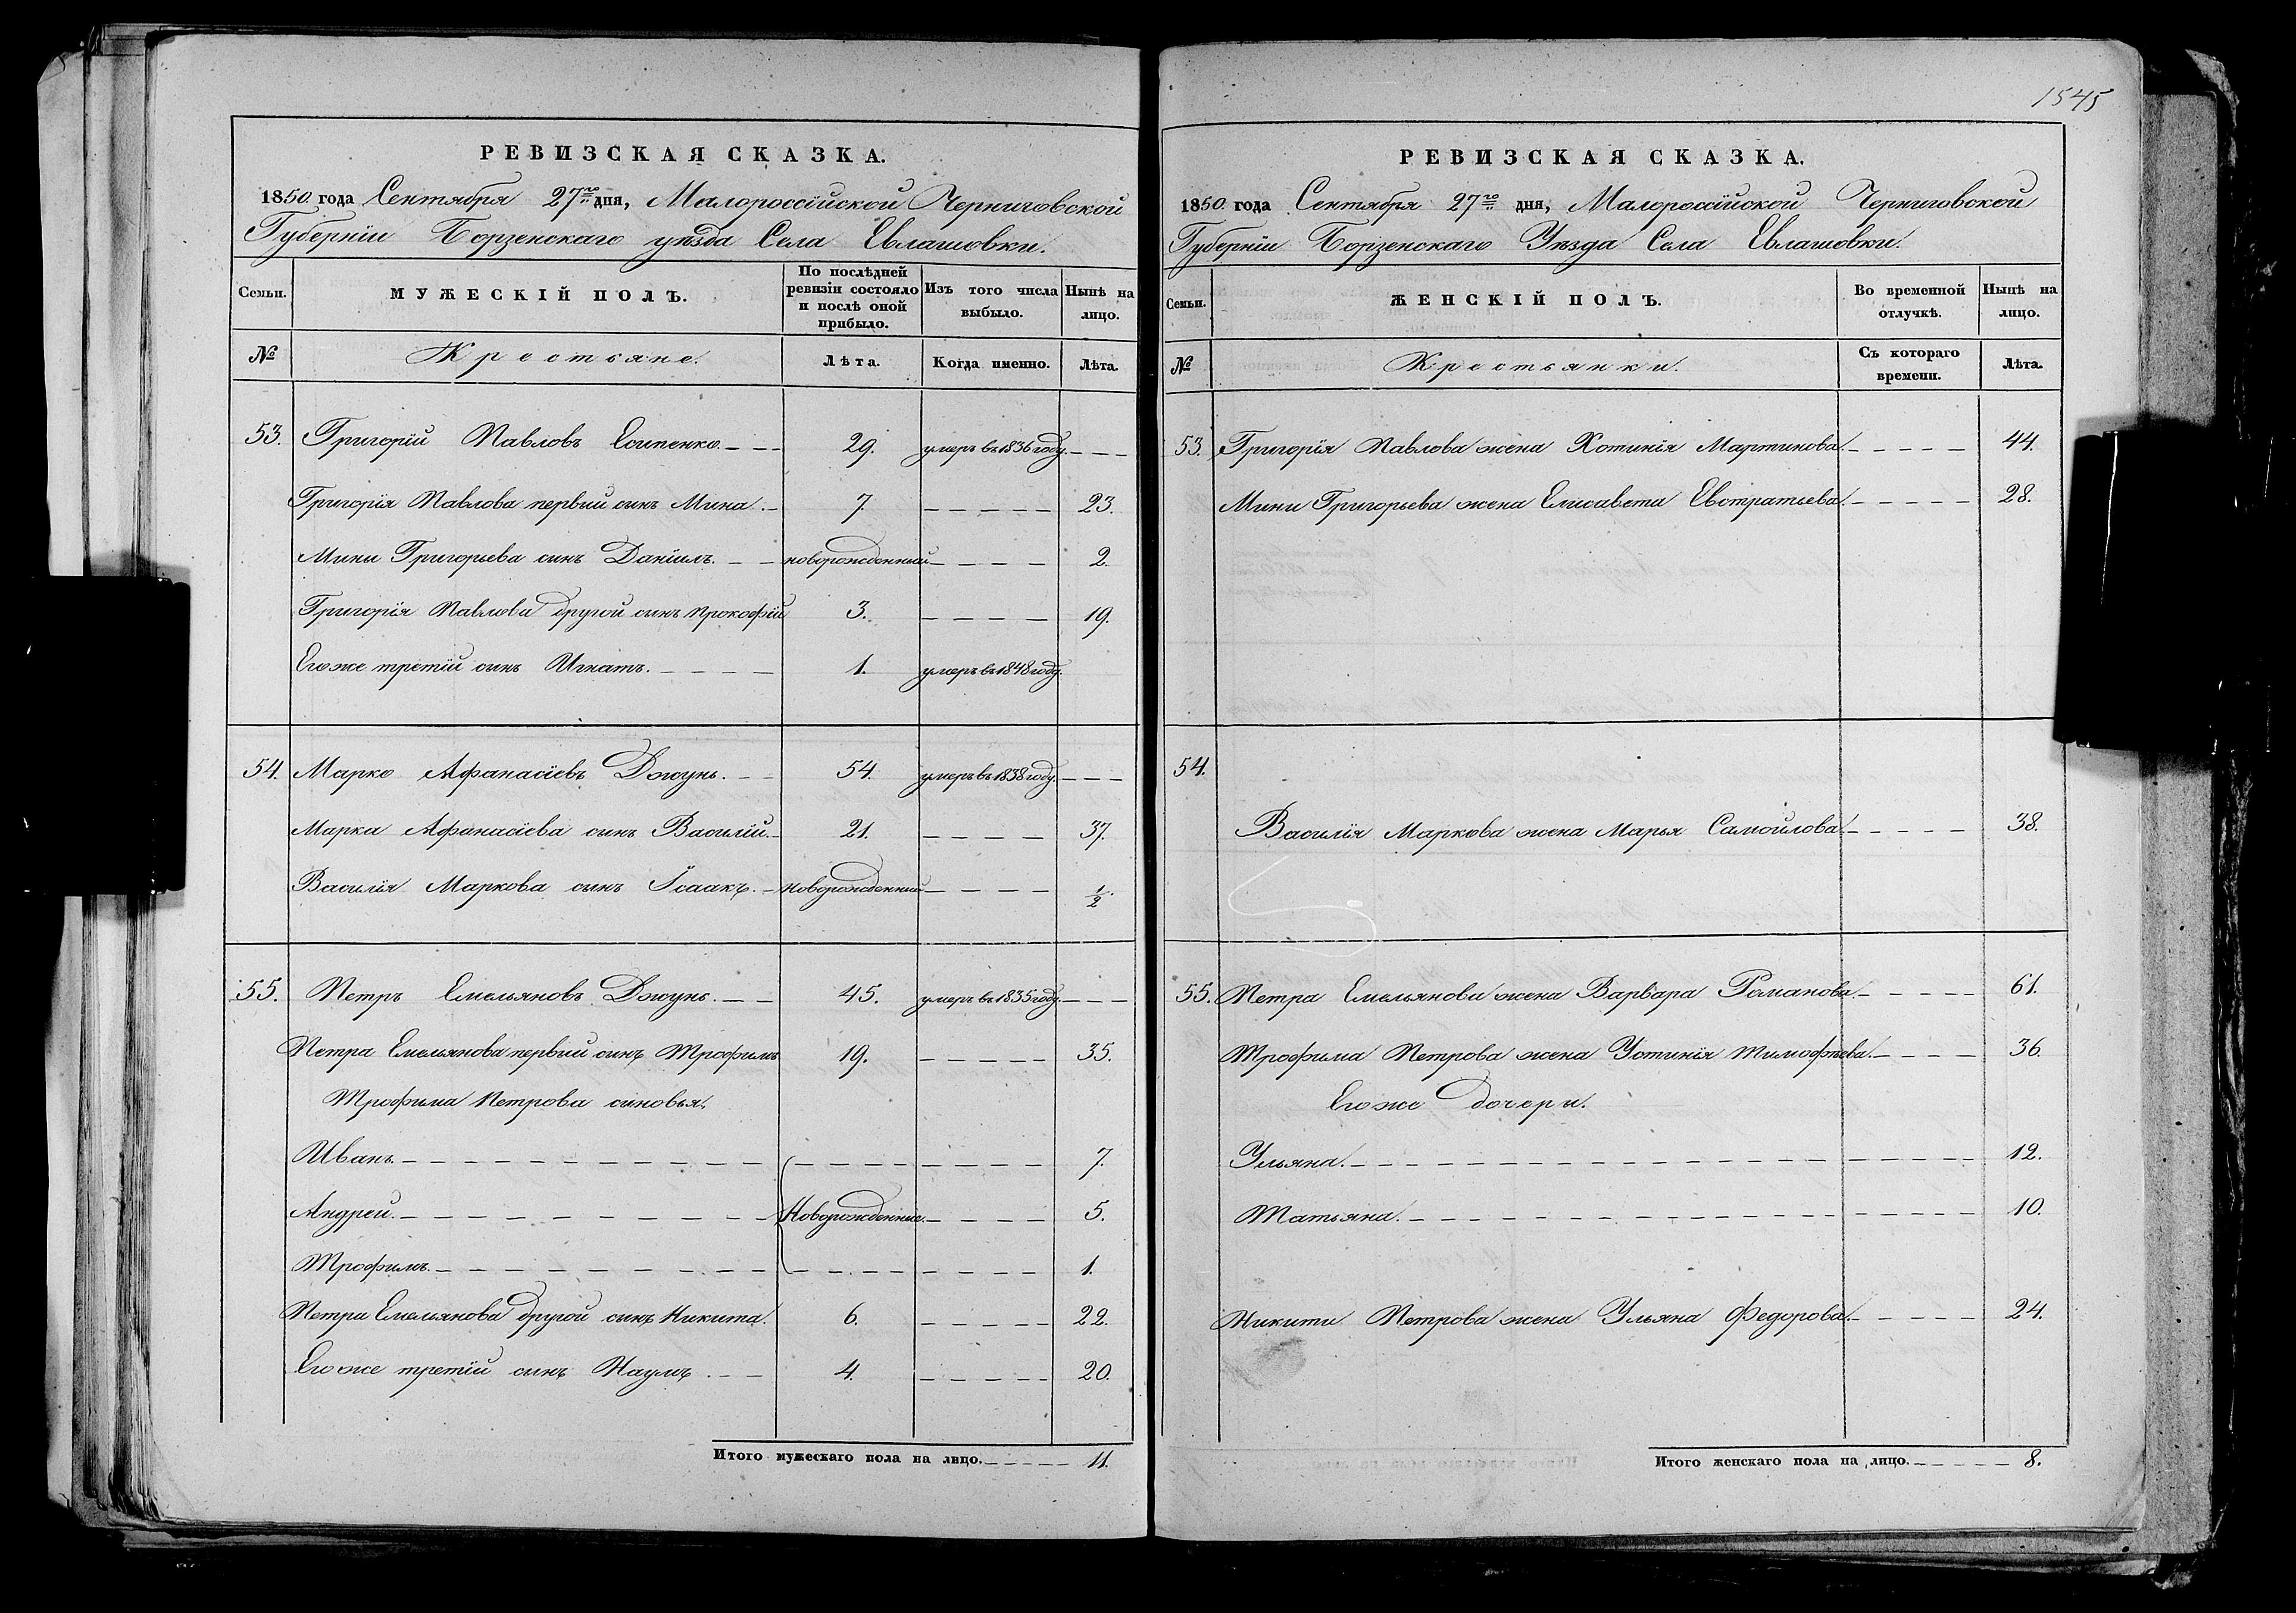 РЕВИЗСКАЯ СКАЗКА.
1850 года Сентября 27го дня, Малороссійской Черниговской
Губерніи Борзенскаго уѣзда Села Евлашовки.
Семьи.
МУЖЕСКІЙ ПОЛЪ.
По послѣдней ревизіи состояло и послѣ оной прибыло.
Изъ того числа выбыло.
Нынѣ на лицо.
№ Крестьяне. Лѣта. Когда именно. Лѣта.
53. Григорій Павловъ Есипенко. — — 29. умеръ въ 1836 году. — — —
Григорія Павлова первый сынъ Мина. — 7. — — — — — 23.
Мины Григорьева сынъ Даніилъ. — — новорожденный — — — — 2.
Григорія Павлова другой сынъ Прокофій 3. — — — — 19.
Его же третій сынъ Игнатъ. — — — — 1. умеръ въ 1848 году.
54. Марко Афанасіевъ Джунь. — — 54. умеръ въ 1838 году. — — —
Марка Афанасіева сынъ Василій. — 21. — — — — 37.
Василія Маркова сынъ Ісаакъ. — новорожденный — — — — 1/2.
55. Петръ Емельяновъ Джунь. — — 45. умеръ въ 1835 году. — — —
Петра Емельянова первый сынъ Трофимъ 19. — — — — — 35.
Трофима Петрова сыновья.
Иванъ. — — — — — — — — — — — — — — — — 7.
Андрей. — — — — — — — — — Новорожденные. — — — — 5.
Трофимъ. — — — — — — — — — — — — — — — — 1.
Петра Емельянова другой сынъ Никита. 6. — — — — — 22.
Его же третій сынъ Наумъ. — — 4. — — — — — 20.
Итого мужескаго пола на лицо. — — — — — 11.
1545
РЕВИЗСКАЯ СКАЗКА.
1850 года Сентября 27го дня, Малороссійской Черниговской
Губерніи Борзенскаго Уѣзда Села Евлашовки.
Семьи.
ЖЕНСКІЙ ПОЛЪ.
Во временной отлучкѣ.
Нынѣ на лицо.
№ Крестьянки. Съ котораго времени. Лѣта.
53. Григорія Павлова жена Хотинія Мартинова. — — — — — 44.
Мины Григорьева жена Елисавета Евстратьева. — — — — — 28.
54.
Василія Маркова жена Марья Самойлова. — — — — — 38.
55. Петра Емельянова жена Варвара Романова. — — — — 61.
Трофима Петрова жена Устинія Тимофѣева. — — — — 36.
Его же дочери.
Ульяна. — — — — — — — — — — — — — — — — 12.
Татьяна. — — — — — — — — — — — — — — — — 10.
Никиты Петрова жена Ульяна Федорова. — — — — — 24.
Итого женскаго пола на лицо. — — — — — 8.